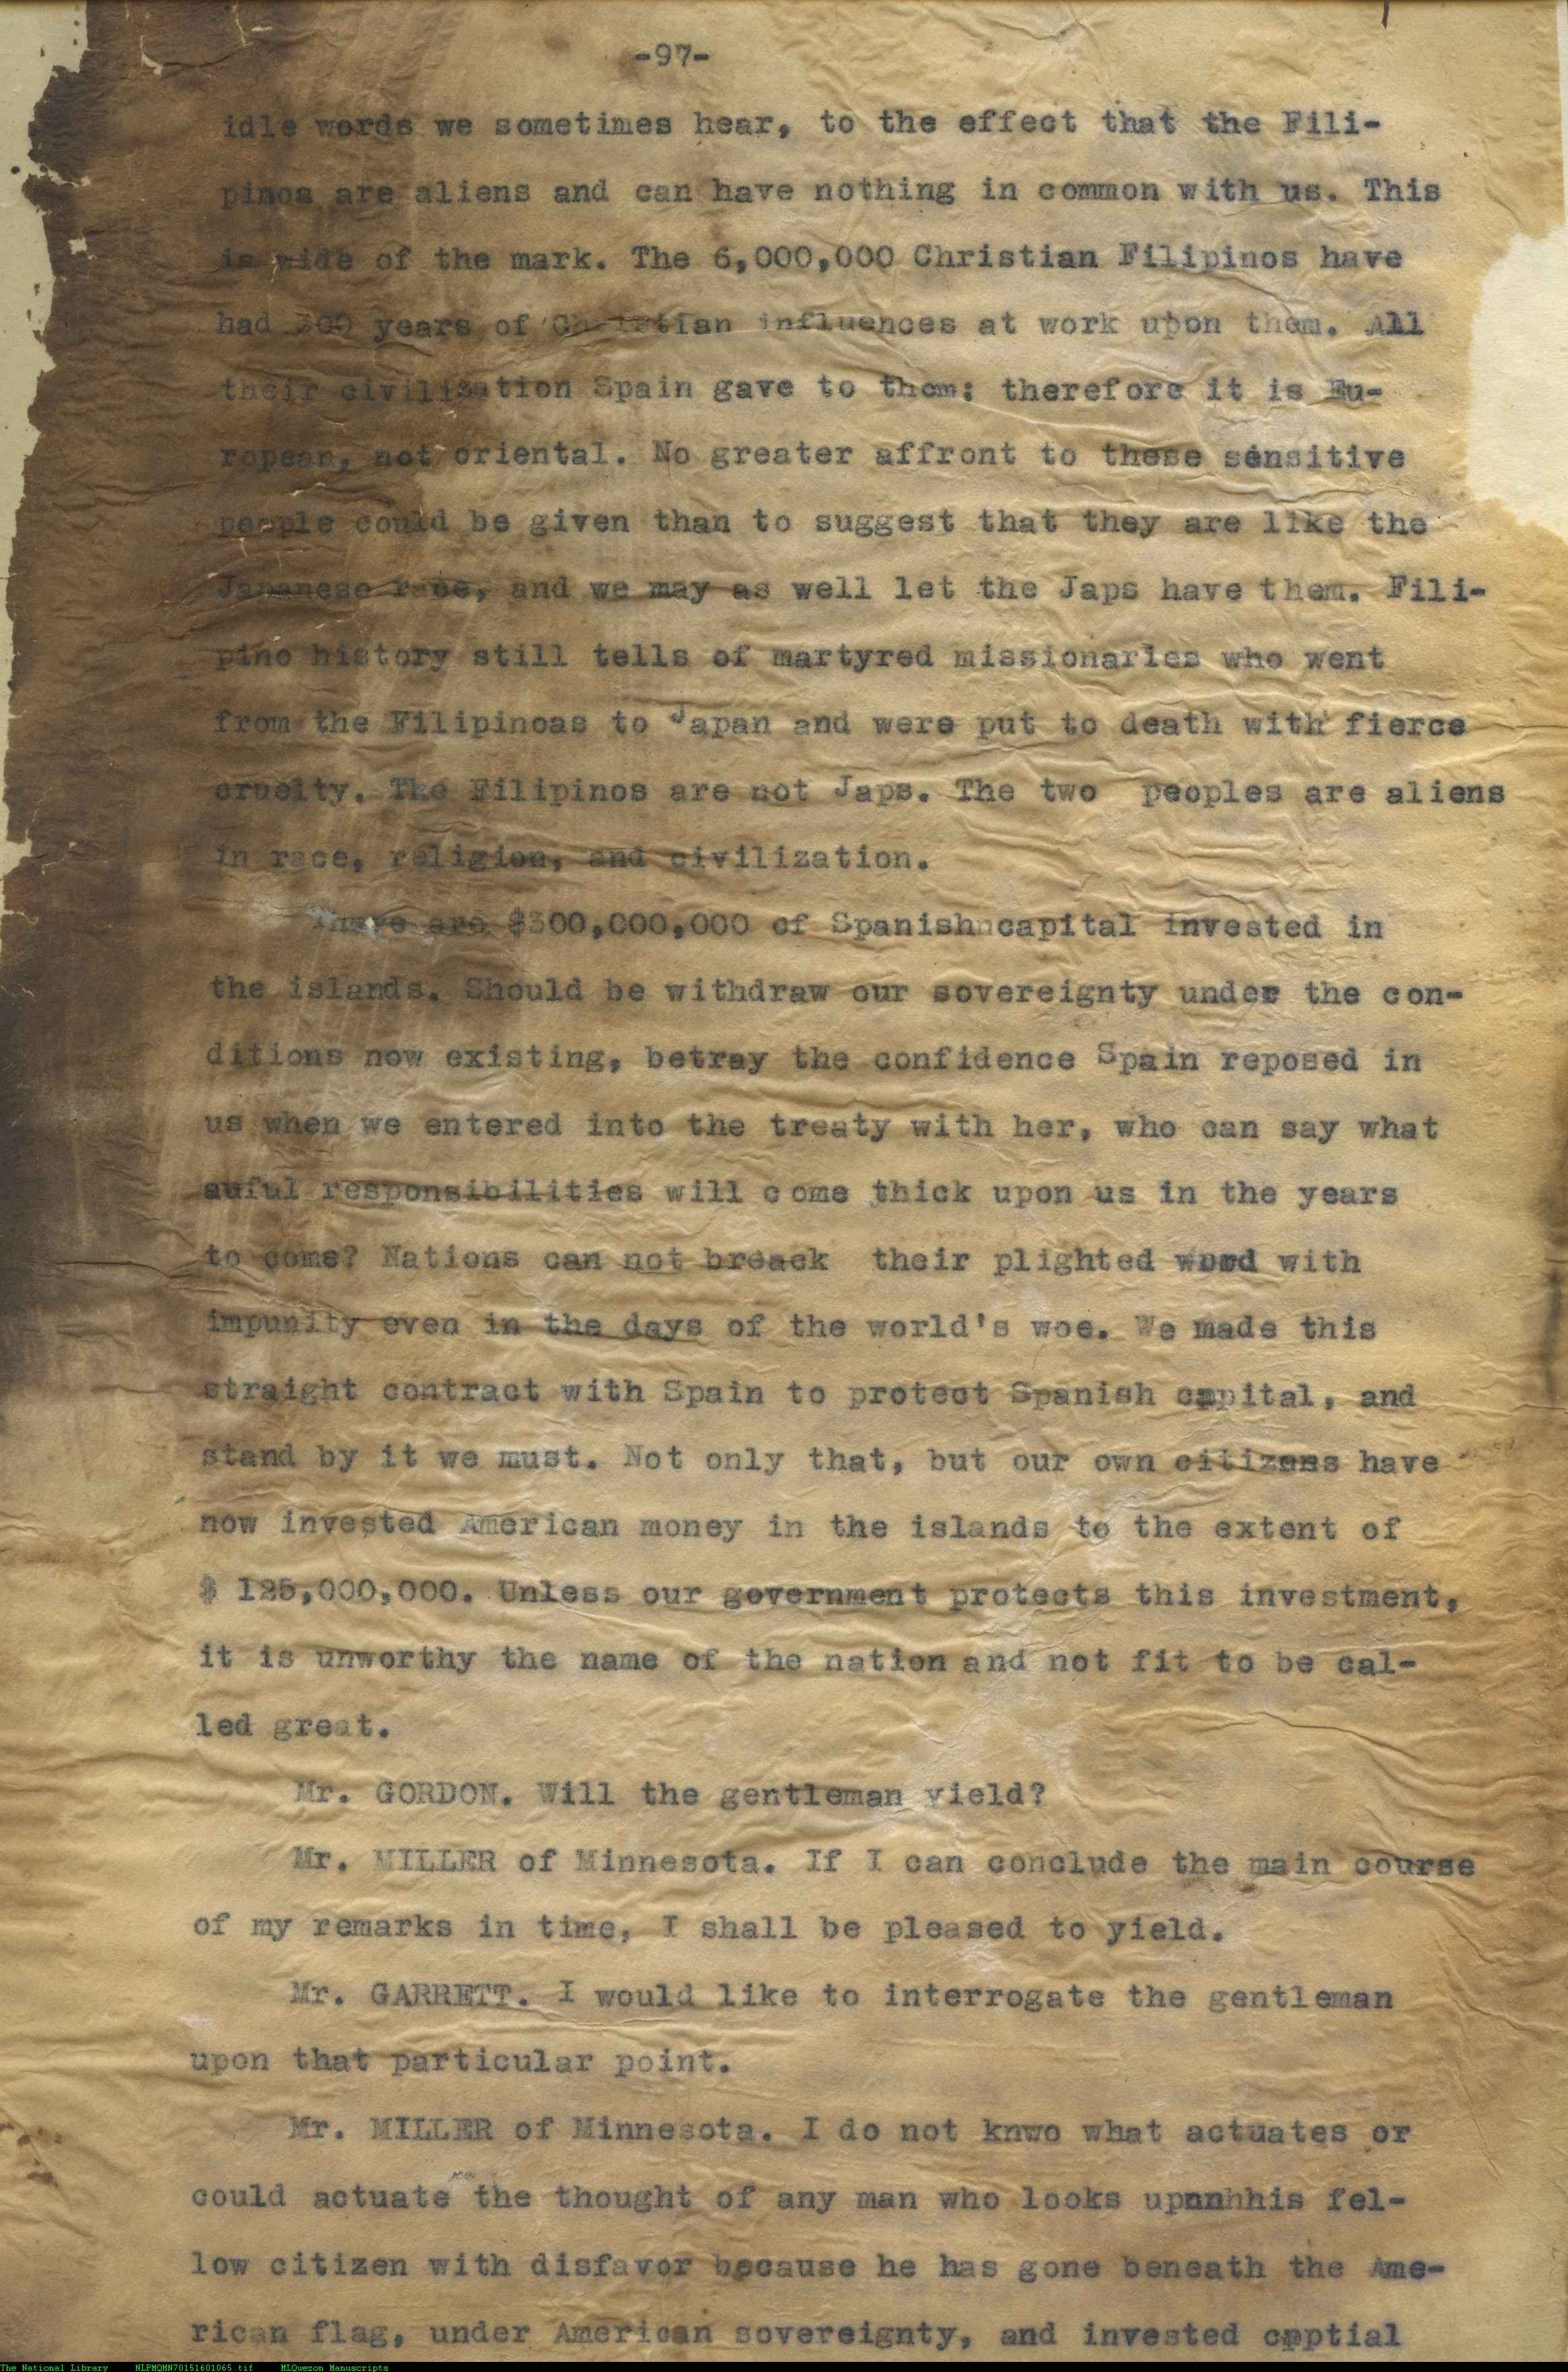 -97-
idle words we sometimes hear, to the effect that the Fili-
pinos are aliens and can have nothing in common with us. This
is wide of the mark. The 6,000,000 Christian Filipinos have
had 300 years of Christian influences at work upon them. All
their civilization Spain gave to them; therefore it is Eu-
ropean, not oriental. No greater affront to these sensitive
people could be given than to suggest that they are like the
Japanese race, and we may as well let the Japs have them. Fili-
pino history still tells of martyred missionaries who went
from the Filipinoas to Japan and were put to death with fierce
cruelty. The Filipinos are not Japs. The two peoples are aliens
in race, religion, and civilization.
There are $300,000,000 of Spanishncapital invested in
the islands. Should be withdraw our sovereignty under the con-
ditions now existing, betray the confidence Spain reposed in
us when we entered into the treaty with her, who can say what
awful responsibilities will come thick upon us in the years
to come? Nations can not breack their plighted word with
impunity even in the days of the world's woe. We made this
straight contract with Spain to protect Spanish capital, and
stand by it we must. Not only that, but our own citizens have
now invested American money in the islands to the extent of
$ 125,000,000. Unless our government protects this investment,
it is unworthy the name of the nation and not fit to be cal-
led great.
Mr. GORDON. Will the gentleman yield?
Mr. MILLER of Minnesota. If I can conclude the main course
of my remarks in time, I shall be pleased to yield.
Mr. GARRETT. I would like to interrogate the gentleman
upon that particular point.
Mr. MILLER of Minnesota. I do not knwo what actuates or
could actuate the thought of any man who looks upnnhhis fel-
low citizen with disfavor because he has gone beneath the Ame-
rican flag, under American sovereignty, and invested captial
The National Library NLPMQMN70151601065.tif MLQuezon Manuscripts